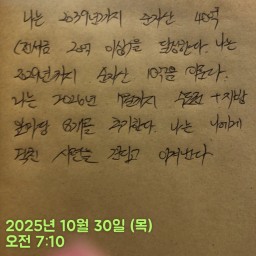 나는 2039년까지 순자산 40억
(전세금 20억 이상)을 달성한다. 나는
2029년까지 순자산 10억을 이룬다.
나는 2026년 까지 수도권 + 지방
8개를 추가한다. 나는 나에게
닥친 시련을 견디고 이겨낸다.
2025년 10월 30일 (목)
오전 7:10